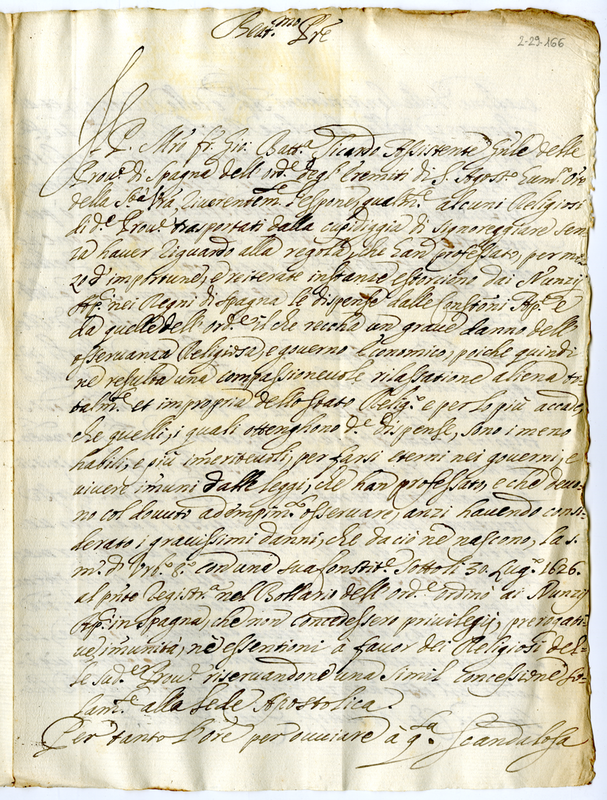 Beat.mo Pre
2-29-166
Il P. Mro fr. Gio: Batta Sicardo Assistente Gnle delle
Prov.e di Spagna dell' ord.e degl' Eremiti di S. Agost.o hum.o Ore
della S.tà V.ra reverentem.te l'espone, qualm.te alcuni Religiosi
di d.e Prov.e trasportati dalla cupidiggia di signoreggiare sen
za haver riguardo alla regola, che han professato, per me
zo d' importune, e reiterate instanze estorcino dai Nunzi
Ap.ci nei Regni di Spagna le dispense dalle Constioni Ap.che e
da quelle dell' ord.e il che reccha un grave danno dell'
osservanza Religiosa, e governo Economico, poiche quindi
ne resulta una compassionevole rilassatione aliena to
talm.te et impropria dello stato Relig.o e per lo più accade,
che quelli, i quali ottenghono d.e dispense, sono i meno
habili, e più imeritevoli, per farsi eterni nei governi, e
vivere imuni dalle leggi, che han professato, e che devo
no col dovuto adempim.to osservare, anzi havendo consi
derato i gravissimi danni, che da ciò ne nascono, la s.
m. d' Urb.o 8.o con una sua Constit.e sotto li 30. Lug.o 1626.
al pnte Registr.a nel Bollario dell' ord.e ordinò ai Nunzij
Ap.ci in Spagna, che non concedessero privilegij, prerogati
ve, imunità, nè essentioni a favor dei Religiosi del-
le sud.e Prov.e riservandone una simil concessione so-
lam.te alla Sede Apostolica.
Per tanto l'Ore per ovviare à q.sta scandalosa